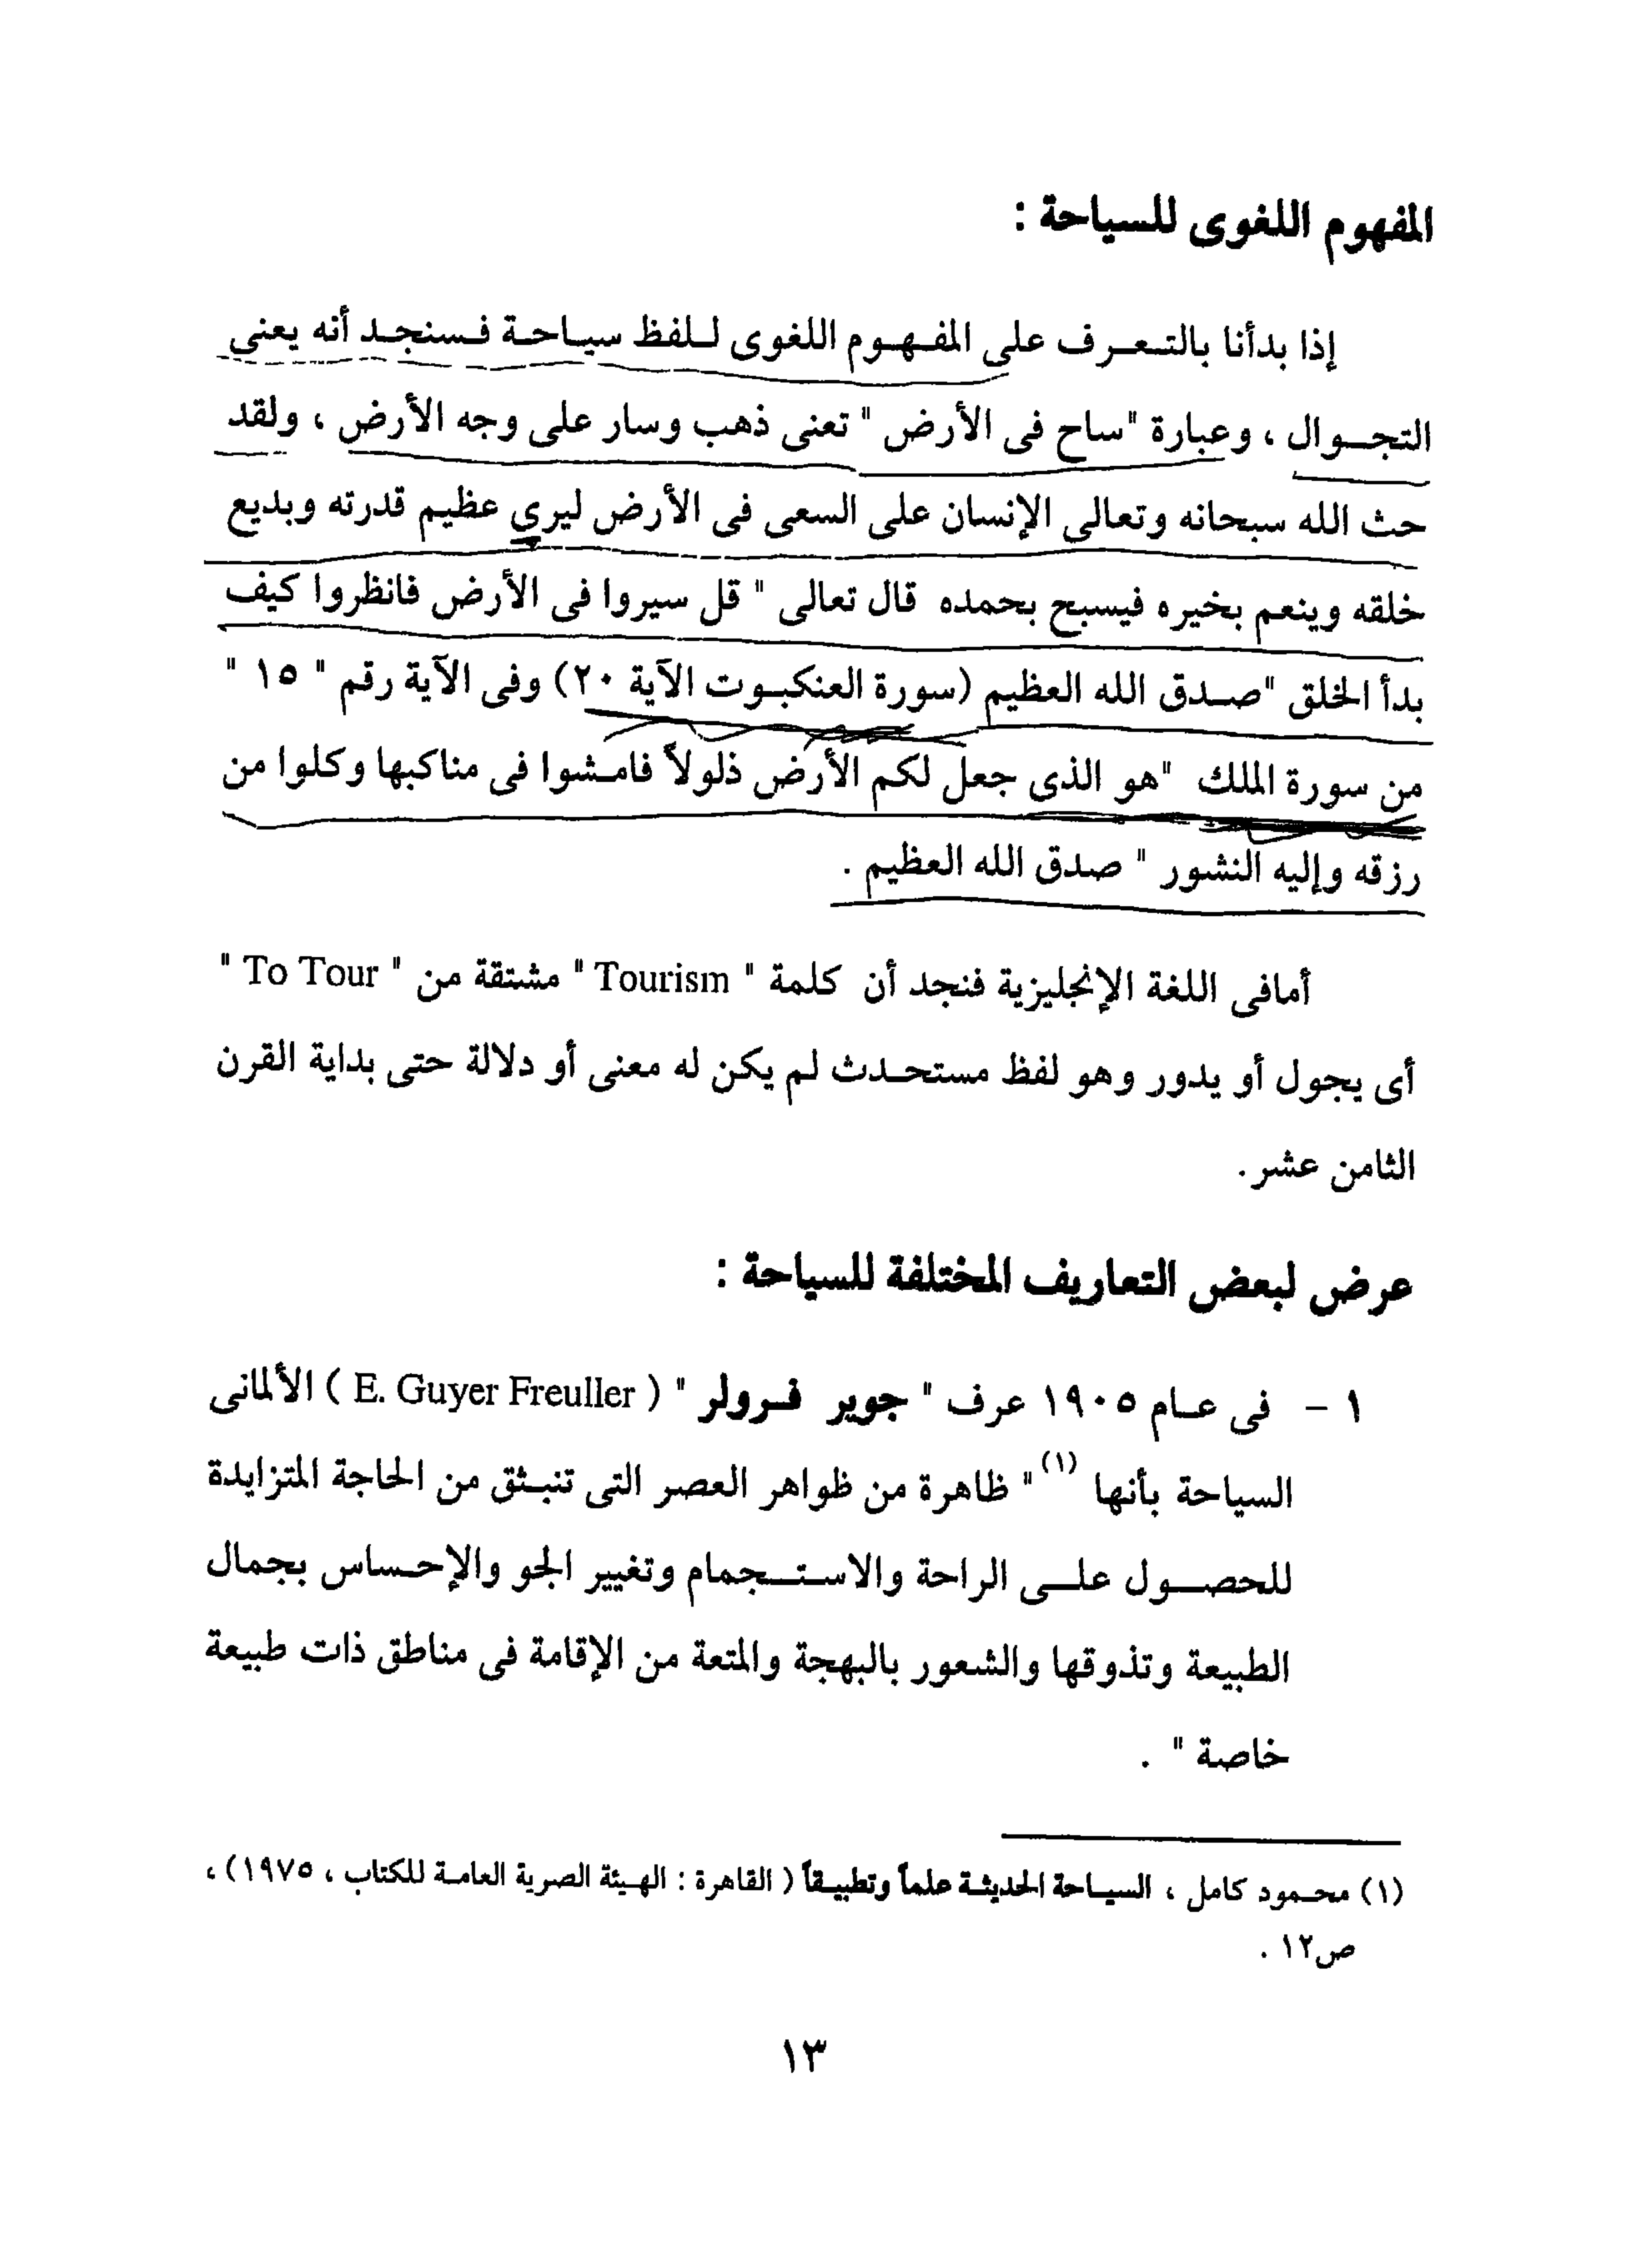 المفهوم اللغوى للسياحة :
إذا بدأنا بالتعرف على المفهوم اللغوى للفظ سياحة فسنجد أنه يعنى
التجوال ، وعبارة "ساح فى الأرض " تعنى ذهب وسار على وجه الأرض ، ولقد
حث الله سبحانه وتعالى الإنسان على السعى فى الأرض ليري عظيم قدرته وبديع
خلقه وينعم بخيره فيسبح بحمده قال تعالى " قل سيروا فى الأرض فانظروا كيف
بدأ الخلق "صدق الله العظيم (سورة العنكبوت الآية ٢٠) وفى الآية رقم " ١٥ "
من سورة الملك "هو الذى جعل لكم الأرض ذلولاً فامشوا فى مناكبها وكلوا من
رزقه وإليه النشور " صدق الله العظيم .
أمافى اللغة الإنجليزية فنجد أن كلمة " Tourism " مشتقة من " To Tour "
أى يجول أو يدور وهو لفظ مستحدث لم يكن له معنى أو دلالة حتى بداية القرن
الثامن عشر .
عرض لبعض التعاريف المختلفة للسياحة :
١ - فى عام ١٩٠٥ عرف " جوير فرولر " ( E. Guyer Freuller ) الألمانى
السياحة بأنها (١) " ظاهرة من ظواهر العصر التى تنبثق من الحاجة المتزايدة
للحصول على الراحة والاستجمام وتغيير الجو والإحساس بجمال
الطبيعة وتذوقها والشعور بالبهجة والمتعة من الإقامة فى مناطق ذات طبيعة
خاصة " .
(١) محمود كامل ، السياحة الحديثة علماً وتطبيقاً ( القاهرة : الهيئة الصرية العامة للكتاب ، ١٩٧٥) ،
ص١٢ .
١٣